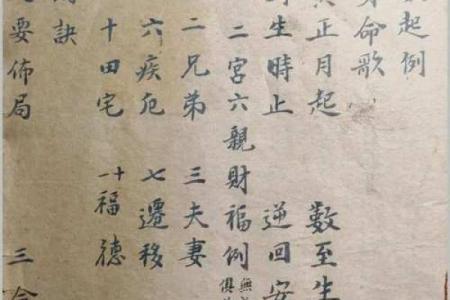 起例
命歌
正月起 數至生
生時止 逆回安
二宮六親財福例
二兄弟 三夫妻
六疾厄 七遷移
十田宅 十一福德
訣
要佈局 三合